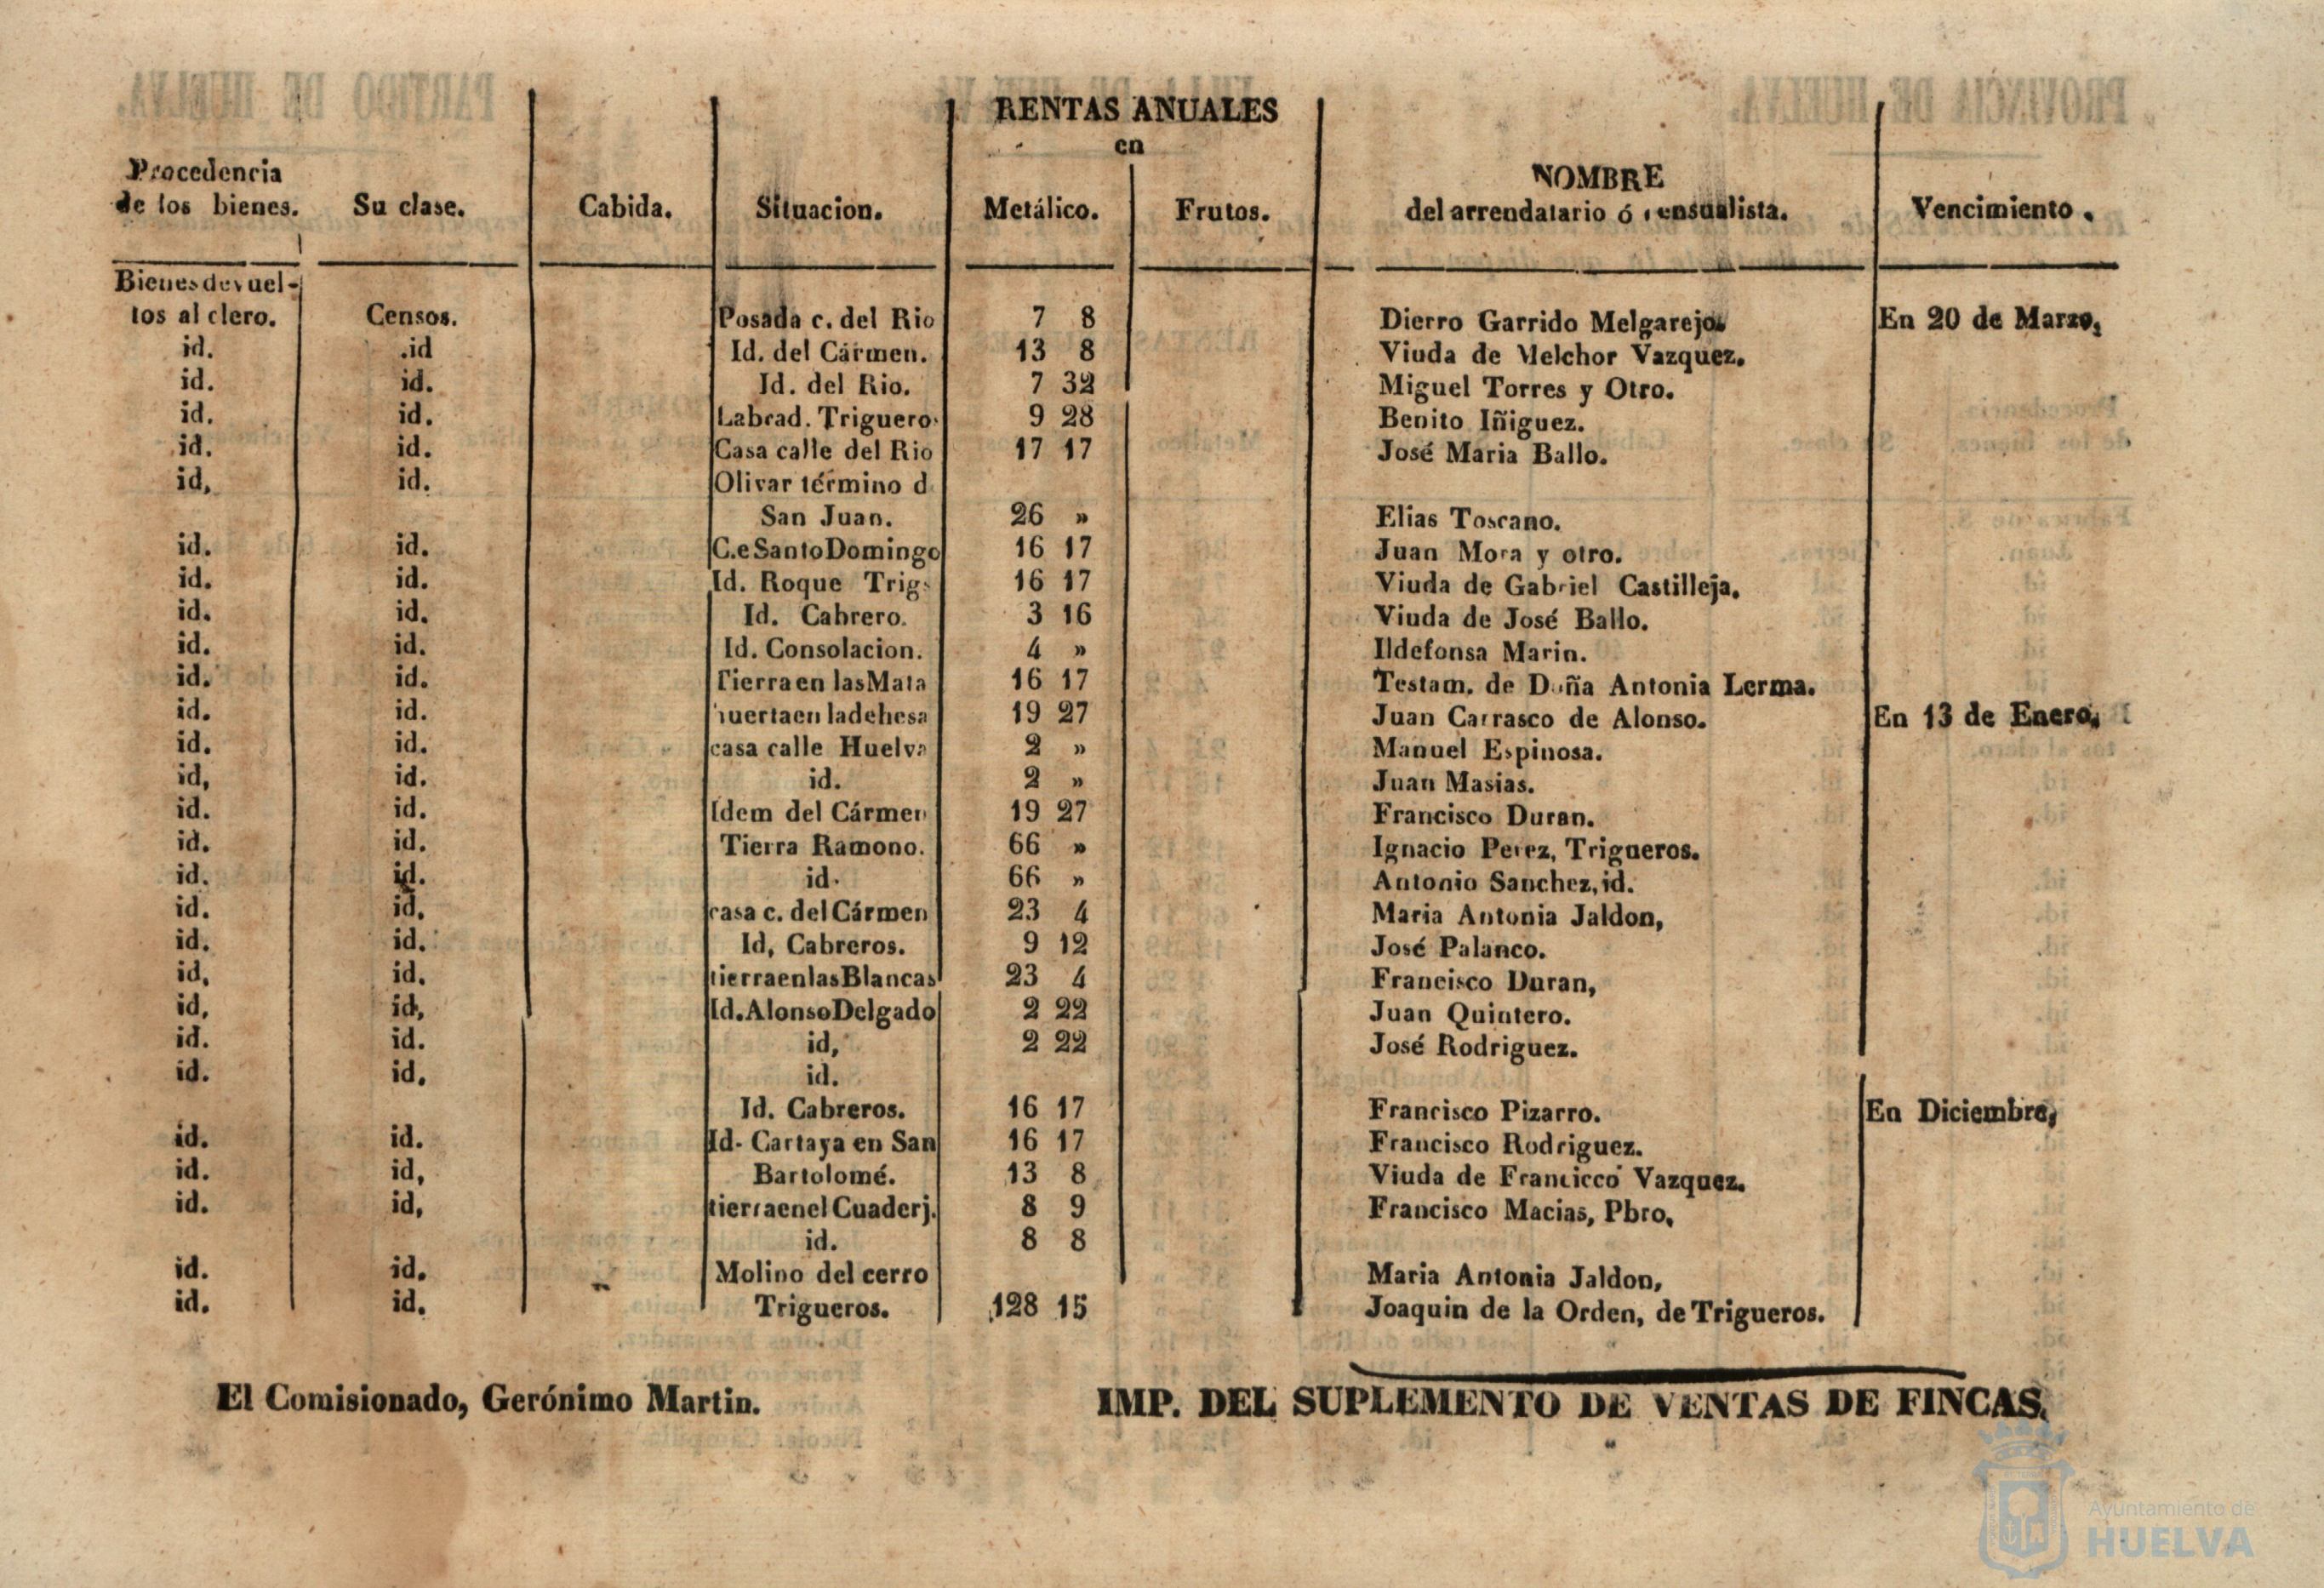 RENTAS ANUALES
en
Procedencia de los bienes. Su clase. Cabida. Situacion. Metálico. Frutos. NOMBRE del arrendatario ó censualista. Vencimiento.
Bienes devuel-
tos al clero. Censos. Posada c. del Rio 7 8 Dierro Garrido Melgarejo. En 20 de Marzo,
id. .id Id. del Cármen. 13 8 Viuda de Melchor Vazquez.
id. id. Id. del Rio. 7 32 Miguel Torres y Otro.
id. id. Labrad. Triguero 9 28 Benito Iñiguez.
id. id. Casa calle del Rio 17 17 José Maria Ballo.
id, id. Olivar término d
San Juan. 26 » Elias Toscano.
id. id. C.e Santo Domingo 16 17 Juan Mora y otro.
id. id. Id. Roque Trig. 16 17 Viuda de Gabriel Castilleja.
id. id. Id. Cabrero. 3 16 Viuda de José Ballo.
id. id. Id. Consolacion. 4 » Ildefonsa Marin.
id. id. Tierra en las Mata 16 17 Testam. de Doña Antonia Lerma.
id. id. huerta en la dehesa 19 27 Juan Carrasco de Alonso. En 13 de Enero,
id. id. casa calle Huelva 2 » Manuel Espinosa.
id, id. id. 2 » Juan Masias.
id. id. Idem del Cármen 19 27 Francisco Duran.
id. id. Tierra Ramono. 66 » Ignacio Perez, Trigueros.
id. id. id. 66 » Antonio Sanchez, id.
id. id. casa c. del Cármen 23 4 Maria Antonia Jaldon,
id. id. Id, Cabreros. 9 12 José Palanco.
id, id. tierra en las Blancas 23 4 Francisco Duran,
id, id, Id. Alonso Delgado 2 22 Juan Quintero.
id. id. id, 2 22 José Rodriguez.
id. id. id.
Id. Cabreros. 16 17 Francisco Pizarro. En Diciembre,
id. id. Id. Cartaya en San 16 17 Francisco Rodriguez.
id. id, Bartolomé. 13 8 Viuda de Francicco Vazquez.
id. id, tierra en el Cuaderj. 8 9 Francisco Macias, Pbro,
id. 8 8
id. id. Molino del cerro Maria Antonia Jaldon,
id. id. Trigueros. 128 15 Joaquin de la Orden, de Trigueros.
El Comisionado, Gerónimo Martin. IMP. DEL SUPLEMENTO DE VENTAS DE FINCAS.
Ayuntamiento de
HUELVA